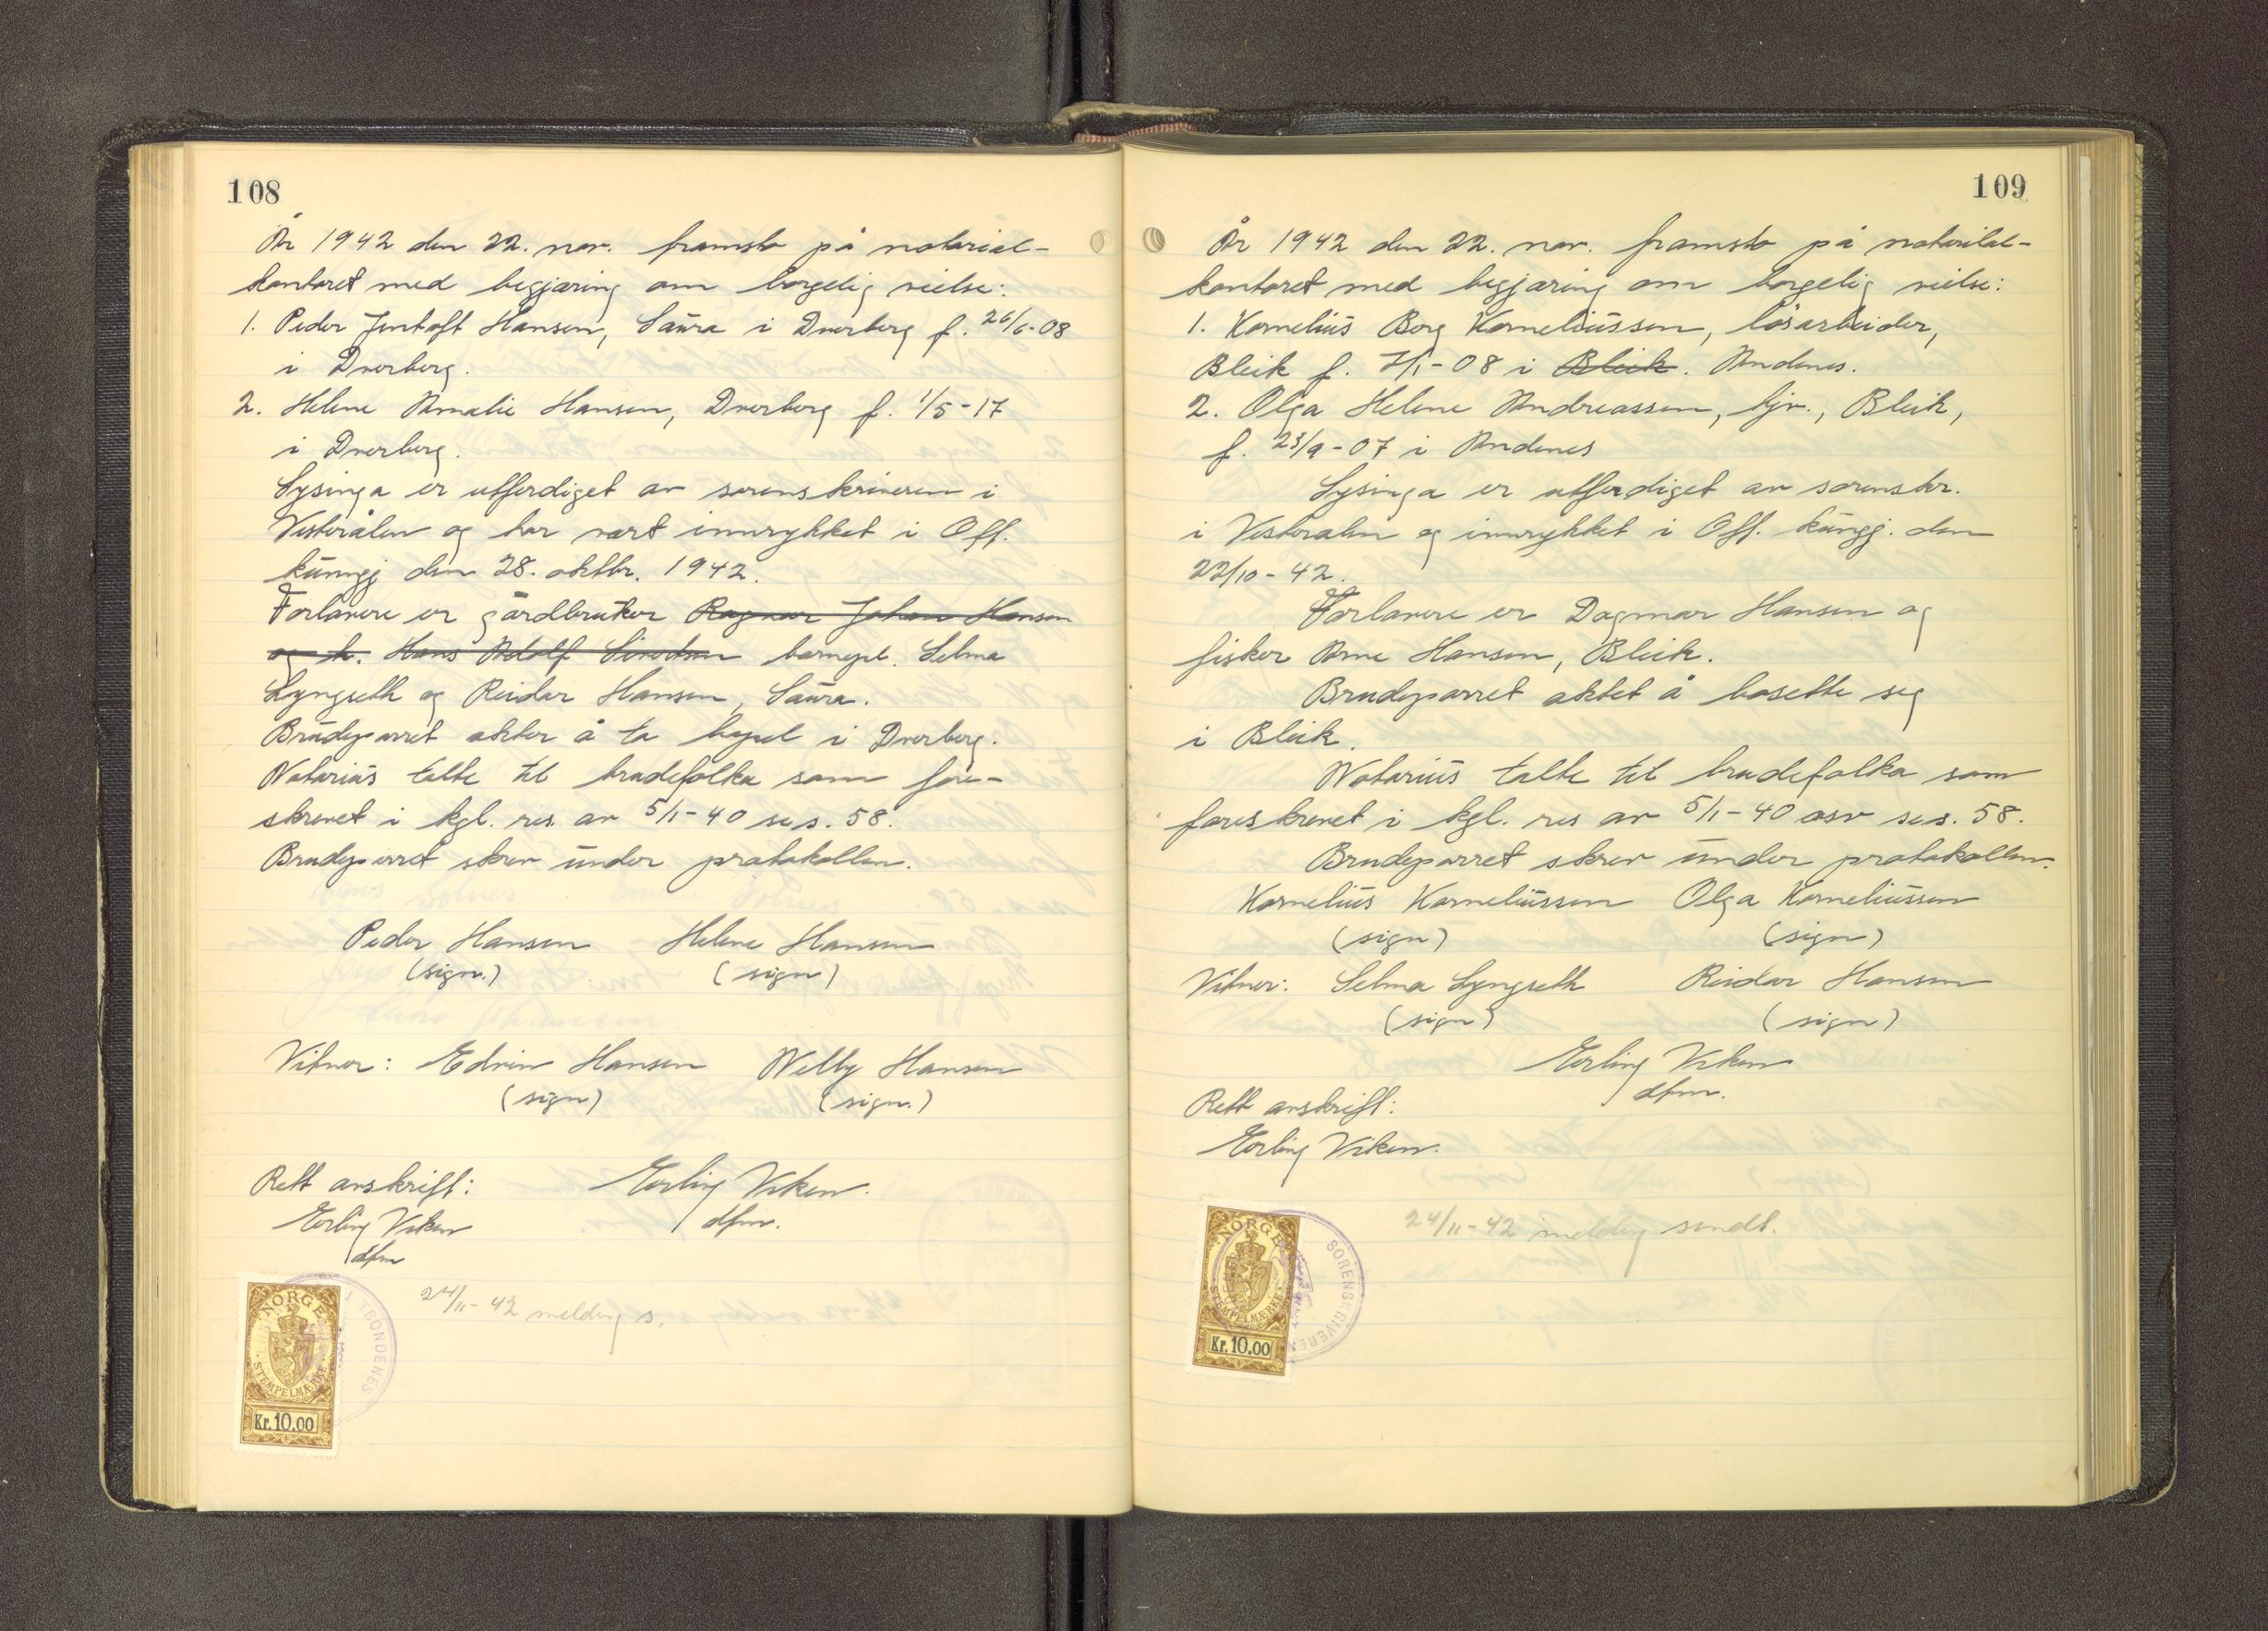 108
År 1942 den 22. nov. framsto på notarial-
kontoret med begjæring om borgelig vielse:
1. Peder Jentoft Hansen, Saura i Dverberg f. 26/6-08
i Dverberg.
2. Helene Amalie Hansen, Dverberg f. 1/5-17
i Dverberg.
Lysinga er utferdiget av sorenskriveren i
Vesterålen og har vært innrykket i Off.
kunngj den 28. oktbr. 1942.
Forlovere er gårdbruker Ragnar Johan Hansen
og h. Hans Adolf barnepl. Selma
Lyngseth og Reidar Hansen, Saura.
Brudeparret akter å ta bopel i Dverberg.
Notarius talte til brudefolka som fore-
skrevet i kgl. res. av 5/1-40 se s. 58.
Brudeparret skrev under protokollen.
Peder Hansen Helene Hansen
(sign.) (sign)
Vitner: Edvin Hansen Willy Hansen
(sign) (sign.)
Rett avskrift: Erling Viken.
Erling Viken dfm.
dfm
24/11-42 melding s.
NORGE
STEMPELMÆRKE
Kr. 10.00
I TRONDENES
109
År 1942 den 22. nov. framsto på notarilal-
kontoret med begjæring om borgelig vielse:
1. Kornelius Borg Korneliussen, løsarbeider,
Bleik f. 7/1-08 i Bleik. Andenes.
2. Olga Helene Andreassen, hjv., Bleik,
f. 23/9-07 i Andenes
Lysinga er utferdiget av sorenskr.
i Vesterålen og innrykket i Off. kungj. den
22/10-42.
Forlovere er Dagmar Hansen og
fisker Arne Hansen, Bleik.
Brudeparret aktet å bosette seg
i Bleik.
Notarius talte til brudefolka som
foreskrevet i kgl. res av 5/1-40 osv se s. 58.
Brudeparret skrev under protokollen.
Kornelius Korneliussen Olga Korneliussen
(sign) (sign)
Vitner: Selma Lyngseth Reidar Hansen
(sign) (sign)
Erling Viken
dfm.
Rett avskrift:
Erling Viken.
24/11-42 melding sendt.
NORGE
STEMPELMÆRKE
Kr. 10.00
SORENSKRIVEREN